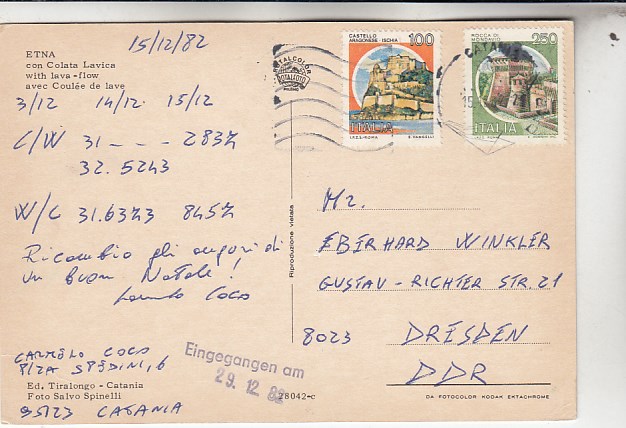 15/12/82
ETNA
con Colata Lavica
with lava-flow
avec Coulée de lave
3/12 14/12 15/12
C/W 31 - - - 2837
32.5243
W/C 31.6373 8457
Ricambio gli auguri di
un buon Natale!
Coco
CARMELO COCO
P/ZA SPEDINI, 6
Ed. Tiralongo - Catania
Foto Salvo Spinelli
95123 CATANIA
Eingegangen am
29. 12. 82
28042-c
Riproduzione vietata
ITALCOLOR
TOTALFOTO
MILANO
CASTELLO
ARAGONESE - ISCHIA
100
ITALIA
I.P.Z.S.-ROMA
ROCCA DI
MONDAVIO
250
ITALIA
CATANIA
Mr.
EBERHARD WINKLER
GUSTAV-RICHTER STR. 21
8023 DRESDEN
DDR
DA FOTOCOLOR KODAK EKTACHROME